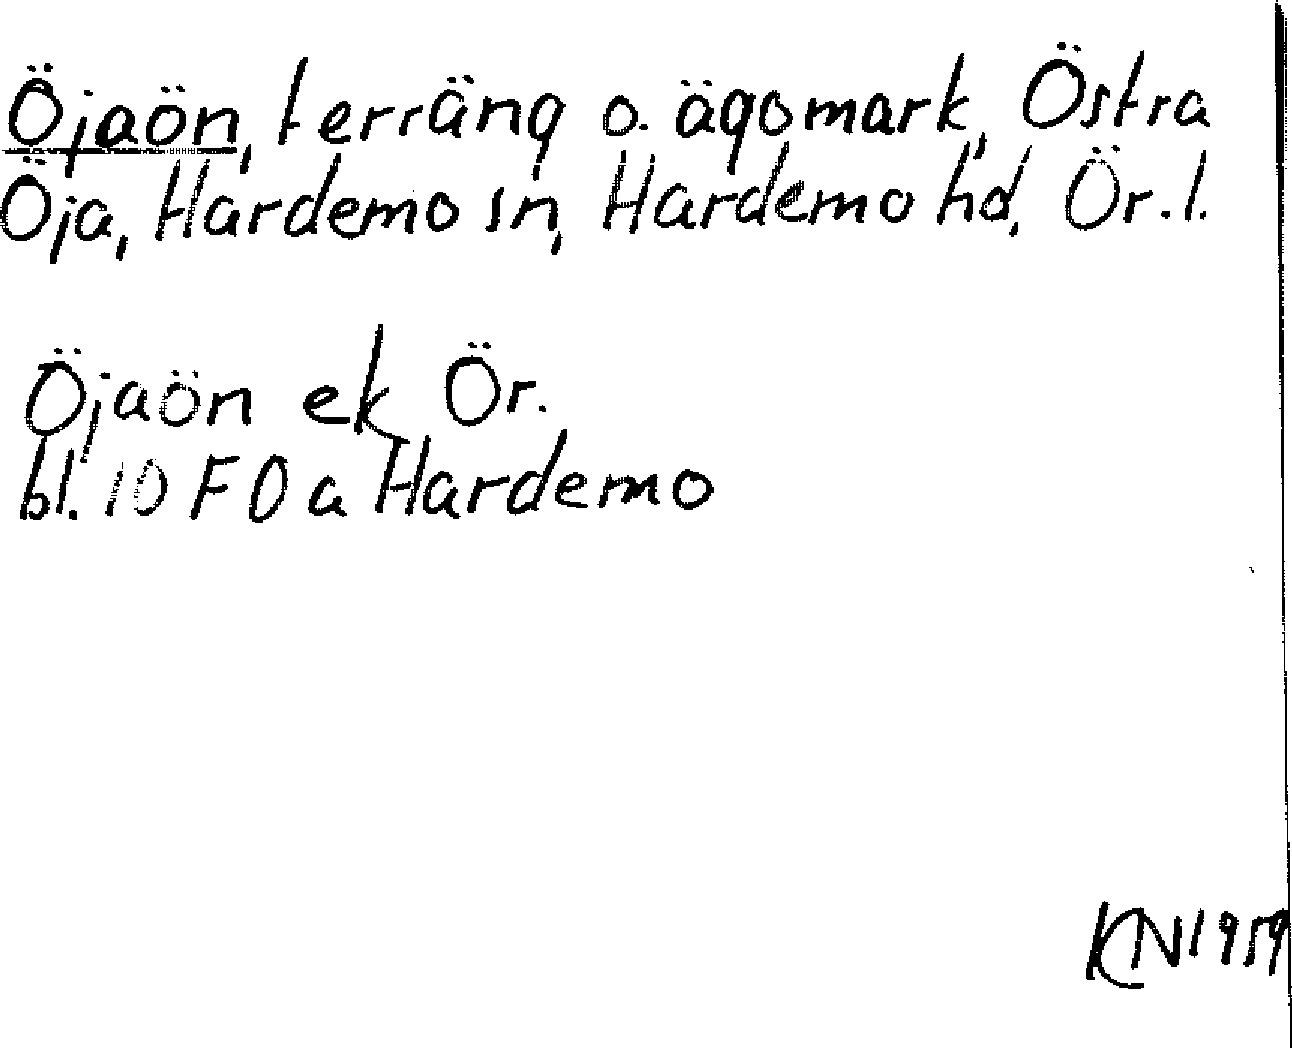 Öjaön, terräng o. ägomark, Östra
Öja, Hardemo sn, Hardemo hd, Ör. l.
Öjaön ek Ör.
bl. 10 F 0 a Hardemo
KN 1959